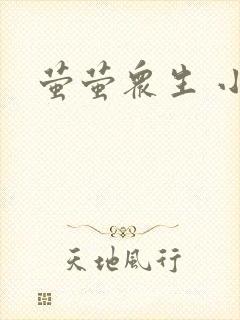 萤萤众生 小
天地风行